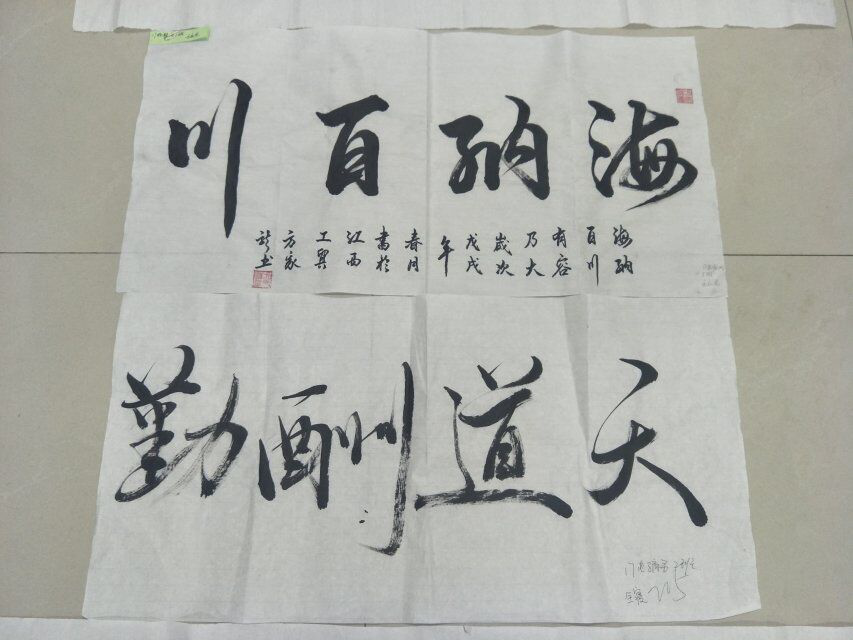 海納百川
海納
百川
有容
乃大
歲次
戊戌
年
春月
書於
江西
方家
天道酬勤
215